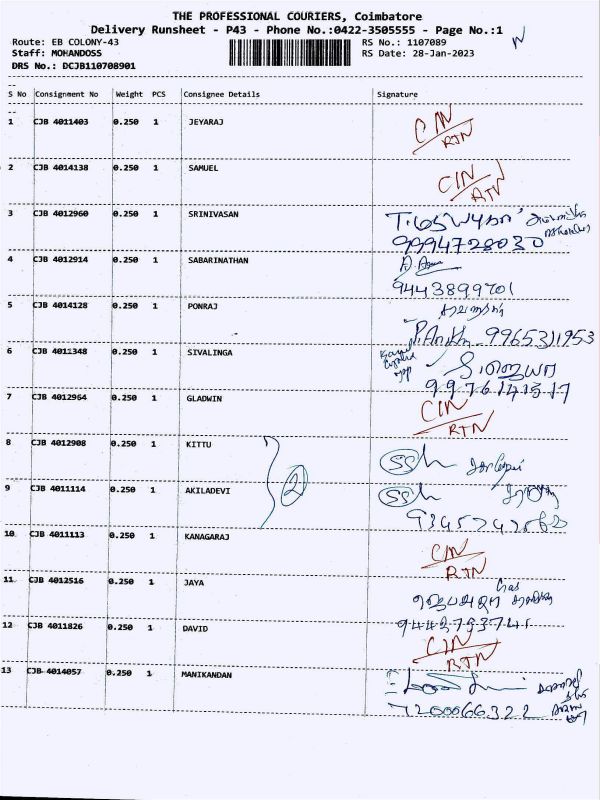 THE PROFESSIONAL COURIERS, Coimbatore
Delivery Runsheet - P43 - Phone No.:0422-3505555 - Page No.:1
Route: EB COLONY-43 RS No.: 1107089
Staff: MOHANDOSS RS Date: 28-Jan-2023
DRS No.: DCJB110708901
S No Consignment No Weight PCS Consignee Details Signature
1 CJB 4011403 0.250 1 JEYARAJ CIN
RTN
2 CJB 4014138 0.250 1 SAMUEL CIN
RTN
3 CJB 4012960 0.250 1 SRINIVASAN
9994728030
4 CJB 4012914 0.250 1 SABARINATHAN
9443899701
5 CJB 4014128 0.250 1 PONRAJ
9965311953
6 CJB 4011348 0.250 1 SIVALINGA
7 CJB 4012964 0.250 1 GLADWIN CIN
RTN
8 CJB 4012908 0.250 1 KITTU
2
9 CJB 4011114 0.250 1 AKILADEVI
10 CJB 4011113 0.250 1 KANAGARAJ CIN
RTN
11 CJB 4012516 0.250 1 JAYA
9442793741
12 CJB 4011826 0.250 1 DAVID CIN
RTN
13 CJB 4014057 0.250 1 MANIKANDAN
7200066322